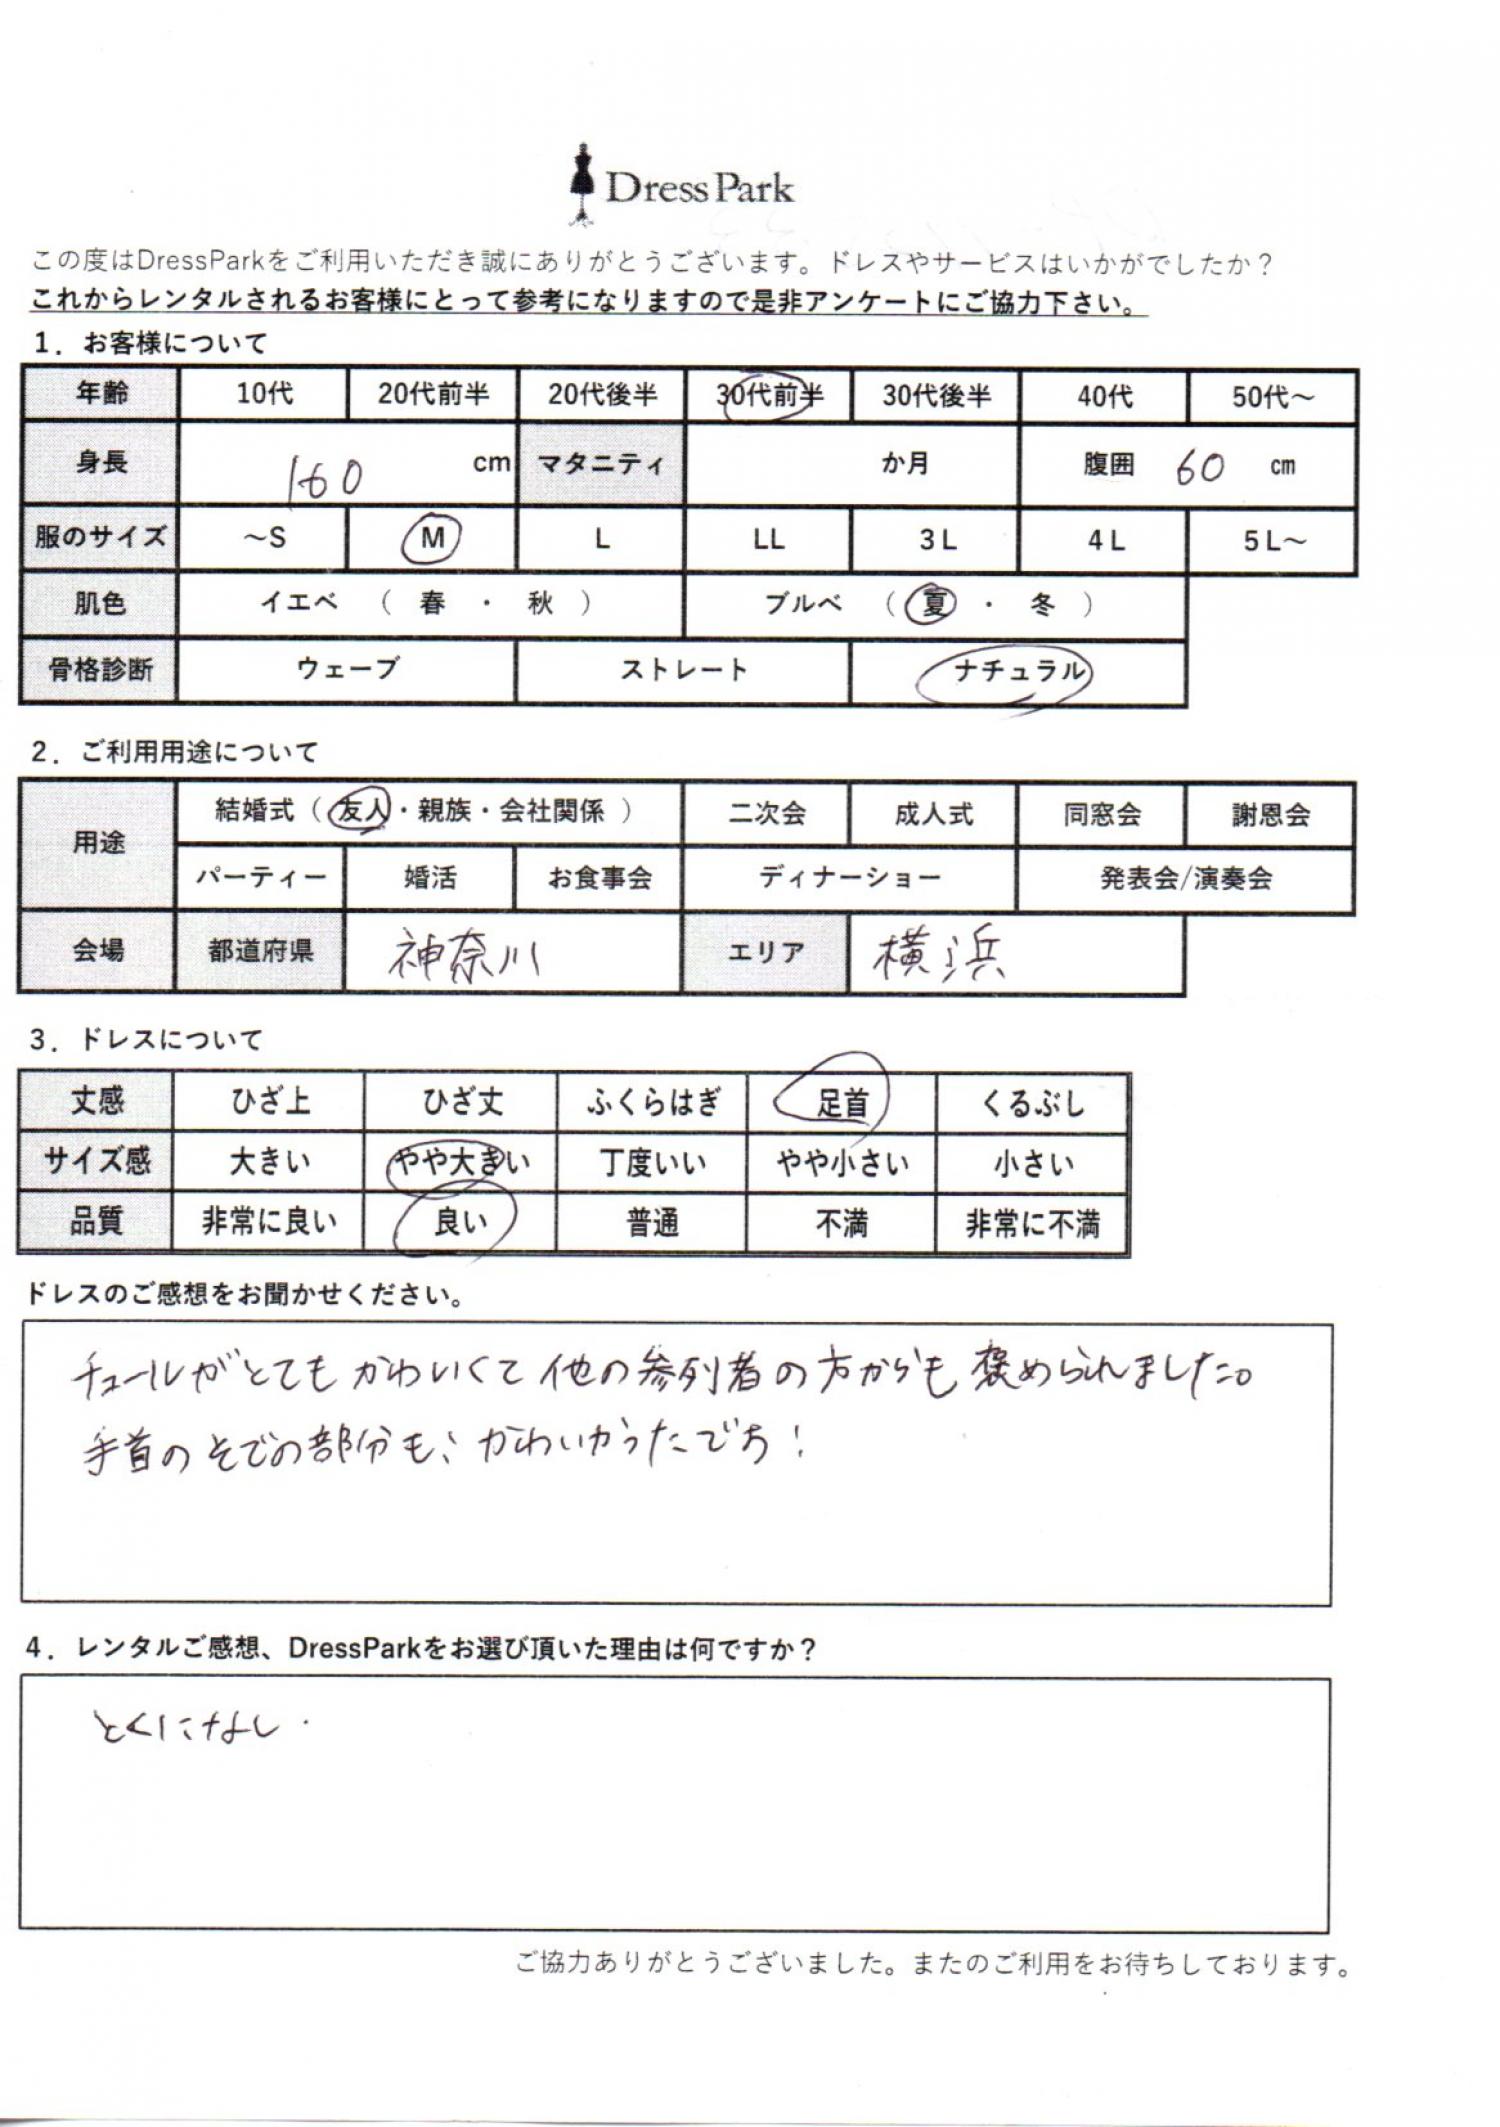 Dress Park
この度はDressParkをご利用いただき誠にありがとうございます。ドレスやサービスはいかがでしたか？
これからレンタルされるお客様にとって参考になりますので是非アンケートにご協力下さい。
1．お客様について
年齢 10代 20代前半 20代後半 30代前半 30代後半 40代 50代～
身長 160 cm マタニティ か月 腹囲 60 cm
服のサイズ ～S M L LL 3L 4L 5L～
肌色 イエベ （ 春 ・ 秋 ） ブルベ （ 夏 ・ 冬 ）
骨格診断 ウェーブ ストレート ナチュラル
2．ご利用用途について
用途 結婚式（ 友人・親族・会社関係 ） 二次会 成人式 同窓会 謝恩会
パーティー 婚活 お食事会 ディナーショー 発表会/演奏会
会場 都道府県 神奈川 エリア 横浜
3．ドレスについて
丈感 ひざ上 ひざ丈 ふくらはぎ 足首 くるぶし
サイズ感 大きい やや大きい 丁度いい やや小さい 小さい
品質 非常に良い 良い 普通 不満 非常に不満
ドレスのご感想をお聞かせください。
チュールがとてもかわいくて他の参列者の方からも褒められました。
手首のそでの部分も、かわいかったです！
4．レンタルご感想、DressParkをお選び頂いた理由は何ですか？
とくになし．
ご協力ありがとうございました。またのご利用をお待ちしております。